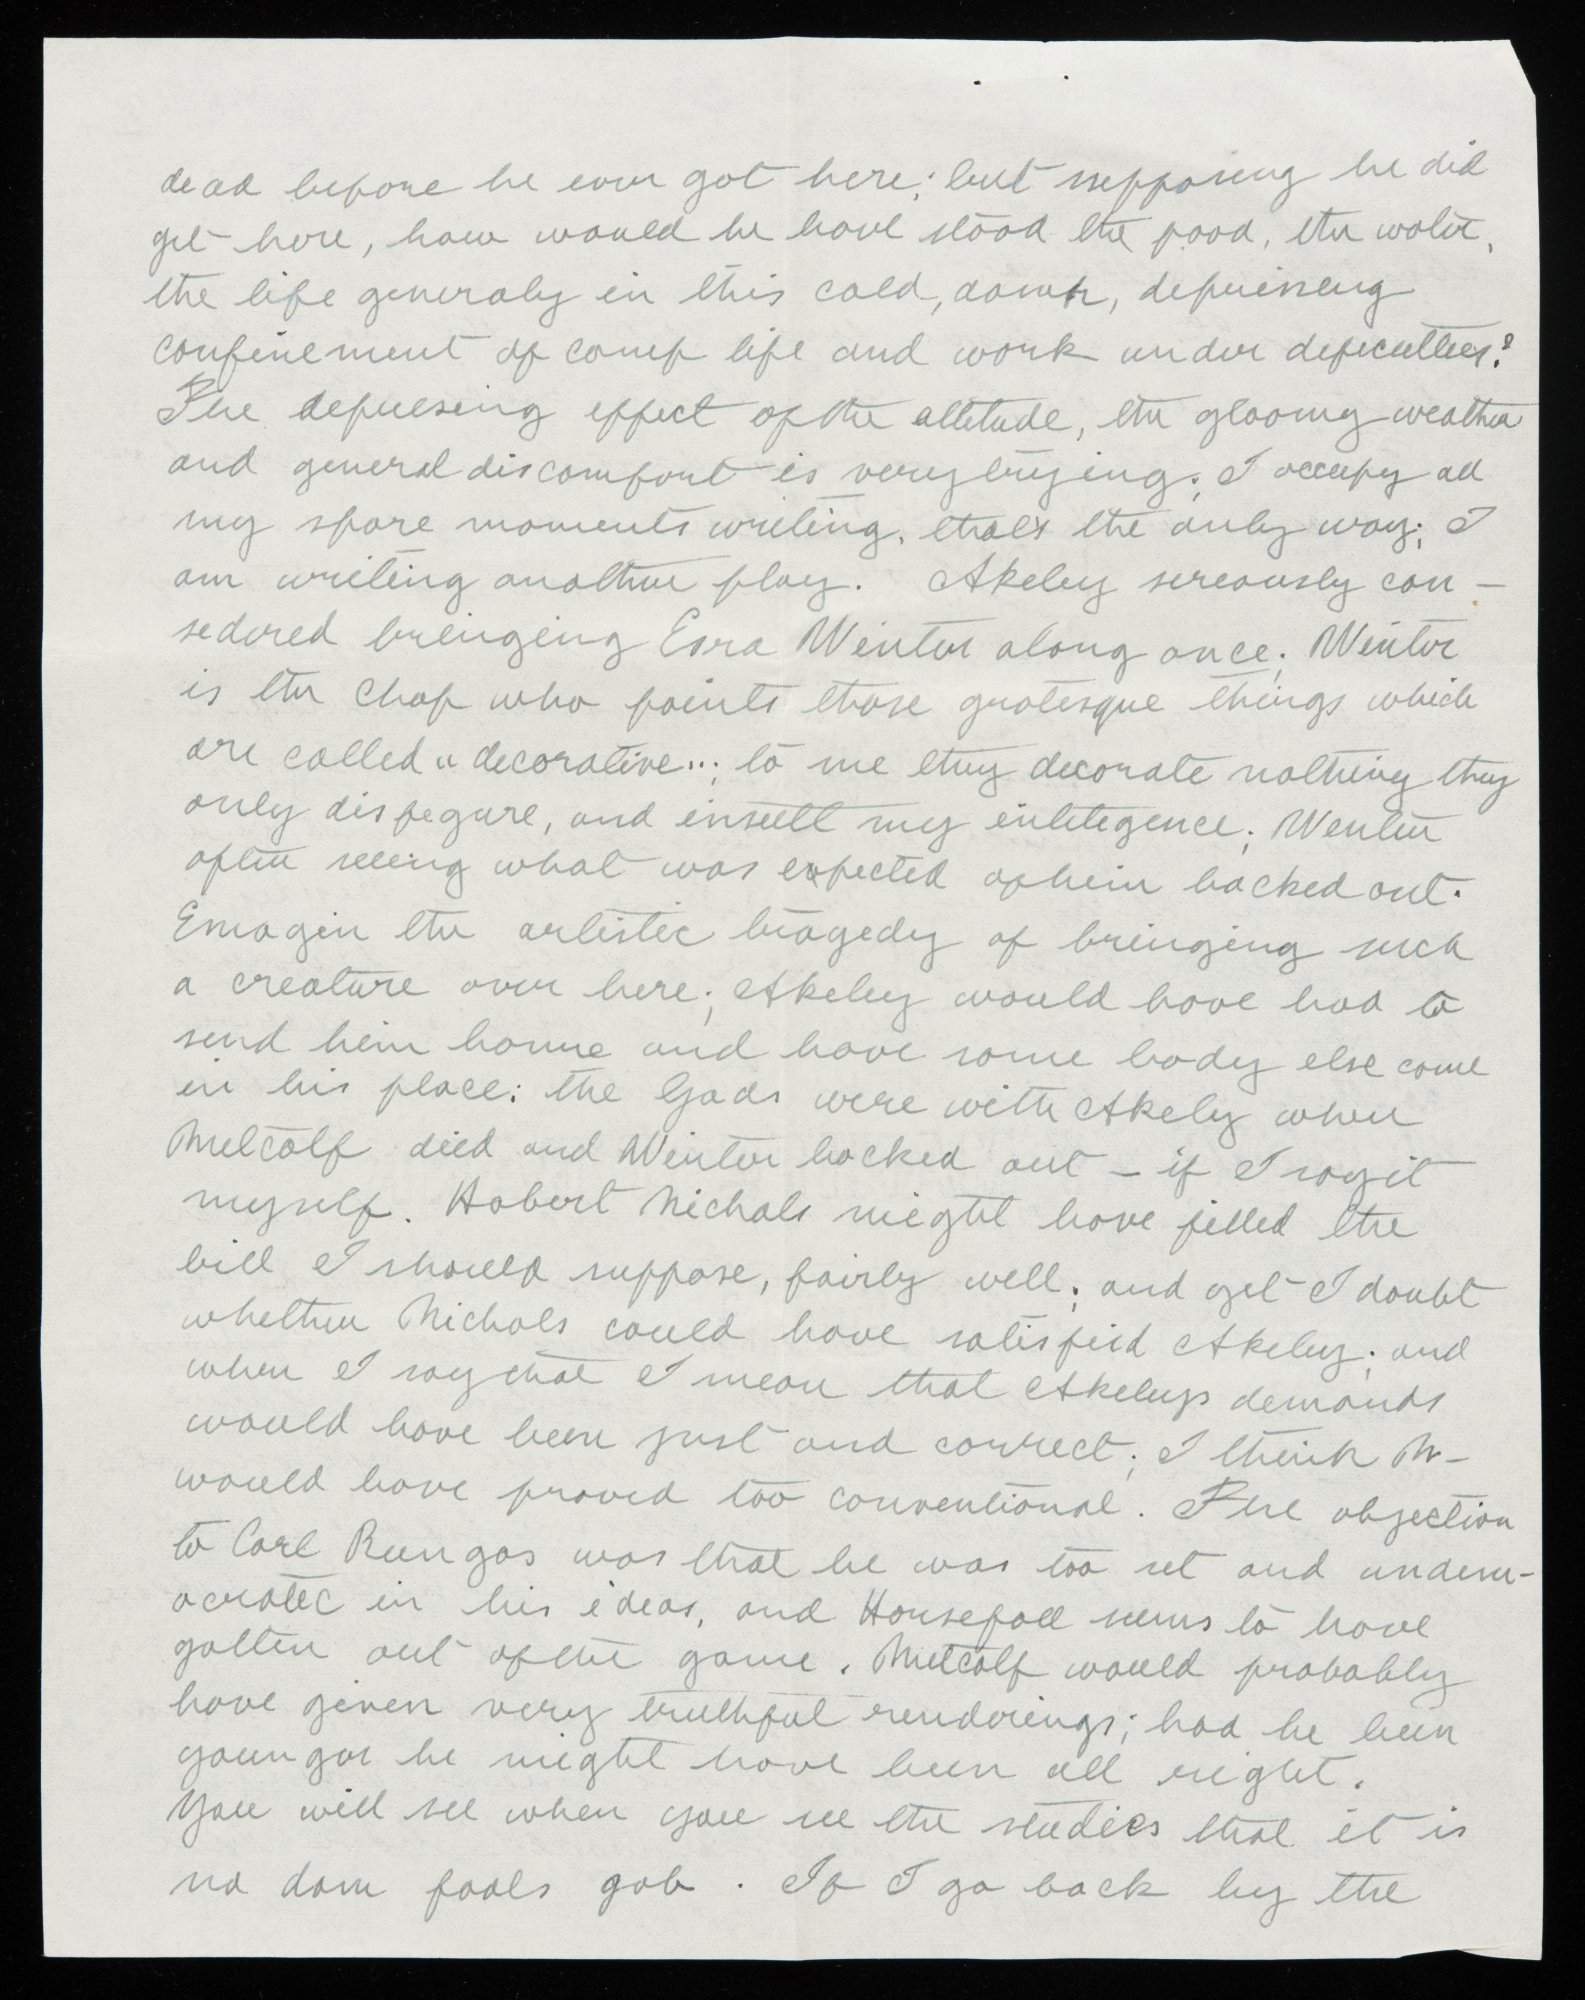 dead before he ever got here; but supposing he did
get here, how would he have stood the food, the water,
the life generaly in this cold, damp, depressing
confinement of camp life and work under dificulties?
The depressing effect of the altitude, the gloomy weather
and general discomfort is very trying; I occupy all
my spare moments writing, thats the only way; I
am writing another play. Akeley sereously con-
sedered bringing Esra Winter along once; Winter
is the chap who paints those grotesque things which
are called "decorative"; to me they decorate nothing they
only disfegure, and insult my intelegence; Winter
after seeing what was expected of him backed out.
Emagin the artistic tragedy of bringing such
a creature over here; Akeley would have had to
send him home and have some body else come
in his place; the Gods were with Akely when
Metcalf died and Winter backed out - if I say it
myself. Hobert Nichals might have filled the
bill I should suppose, fairly well; and yet I doubt
whether Nichols could have satisfied Akeley; and
when I say that I mean that Akeleys demands
would have been just and correct; I think N-
would have proved too conventional. The objection
to Carl Rungas was that he was too set and undem-
ocratic in his ideas, and Horsefall seems to have
gotten out of the game. Metcalf would probably
have given very truthful renderings; had he been
younger he might have been all right.
You will see when you see the studies that it is
no dam fools gob. If I go back by the